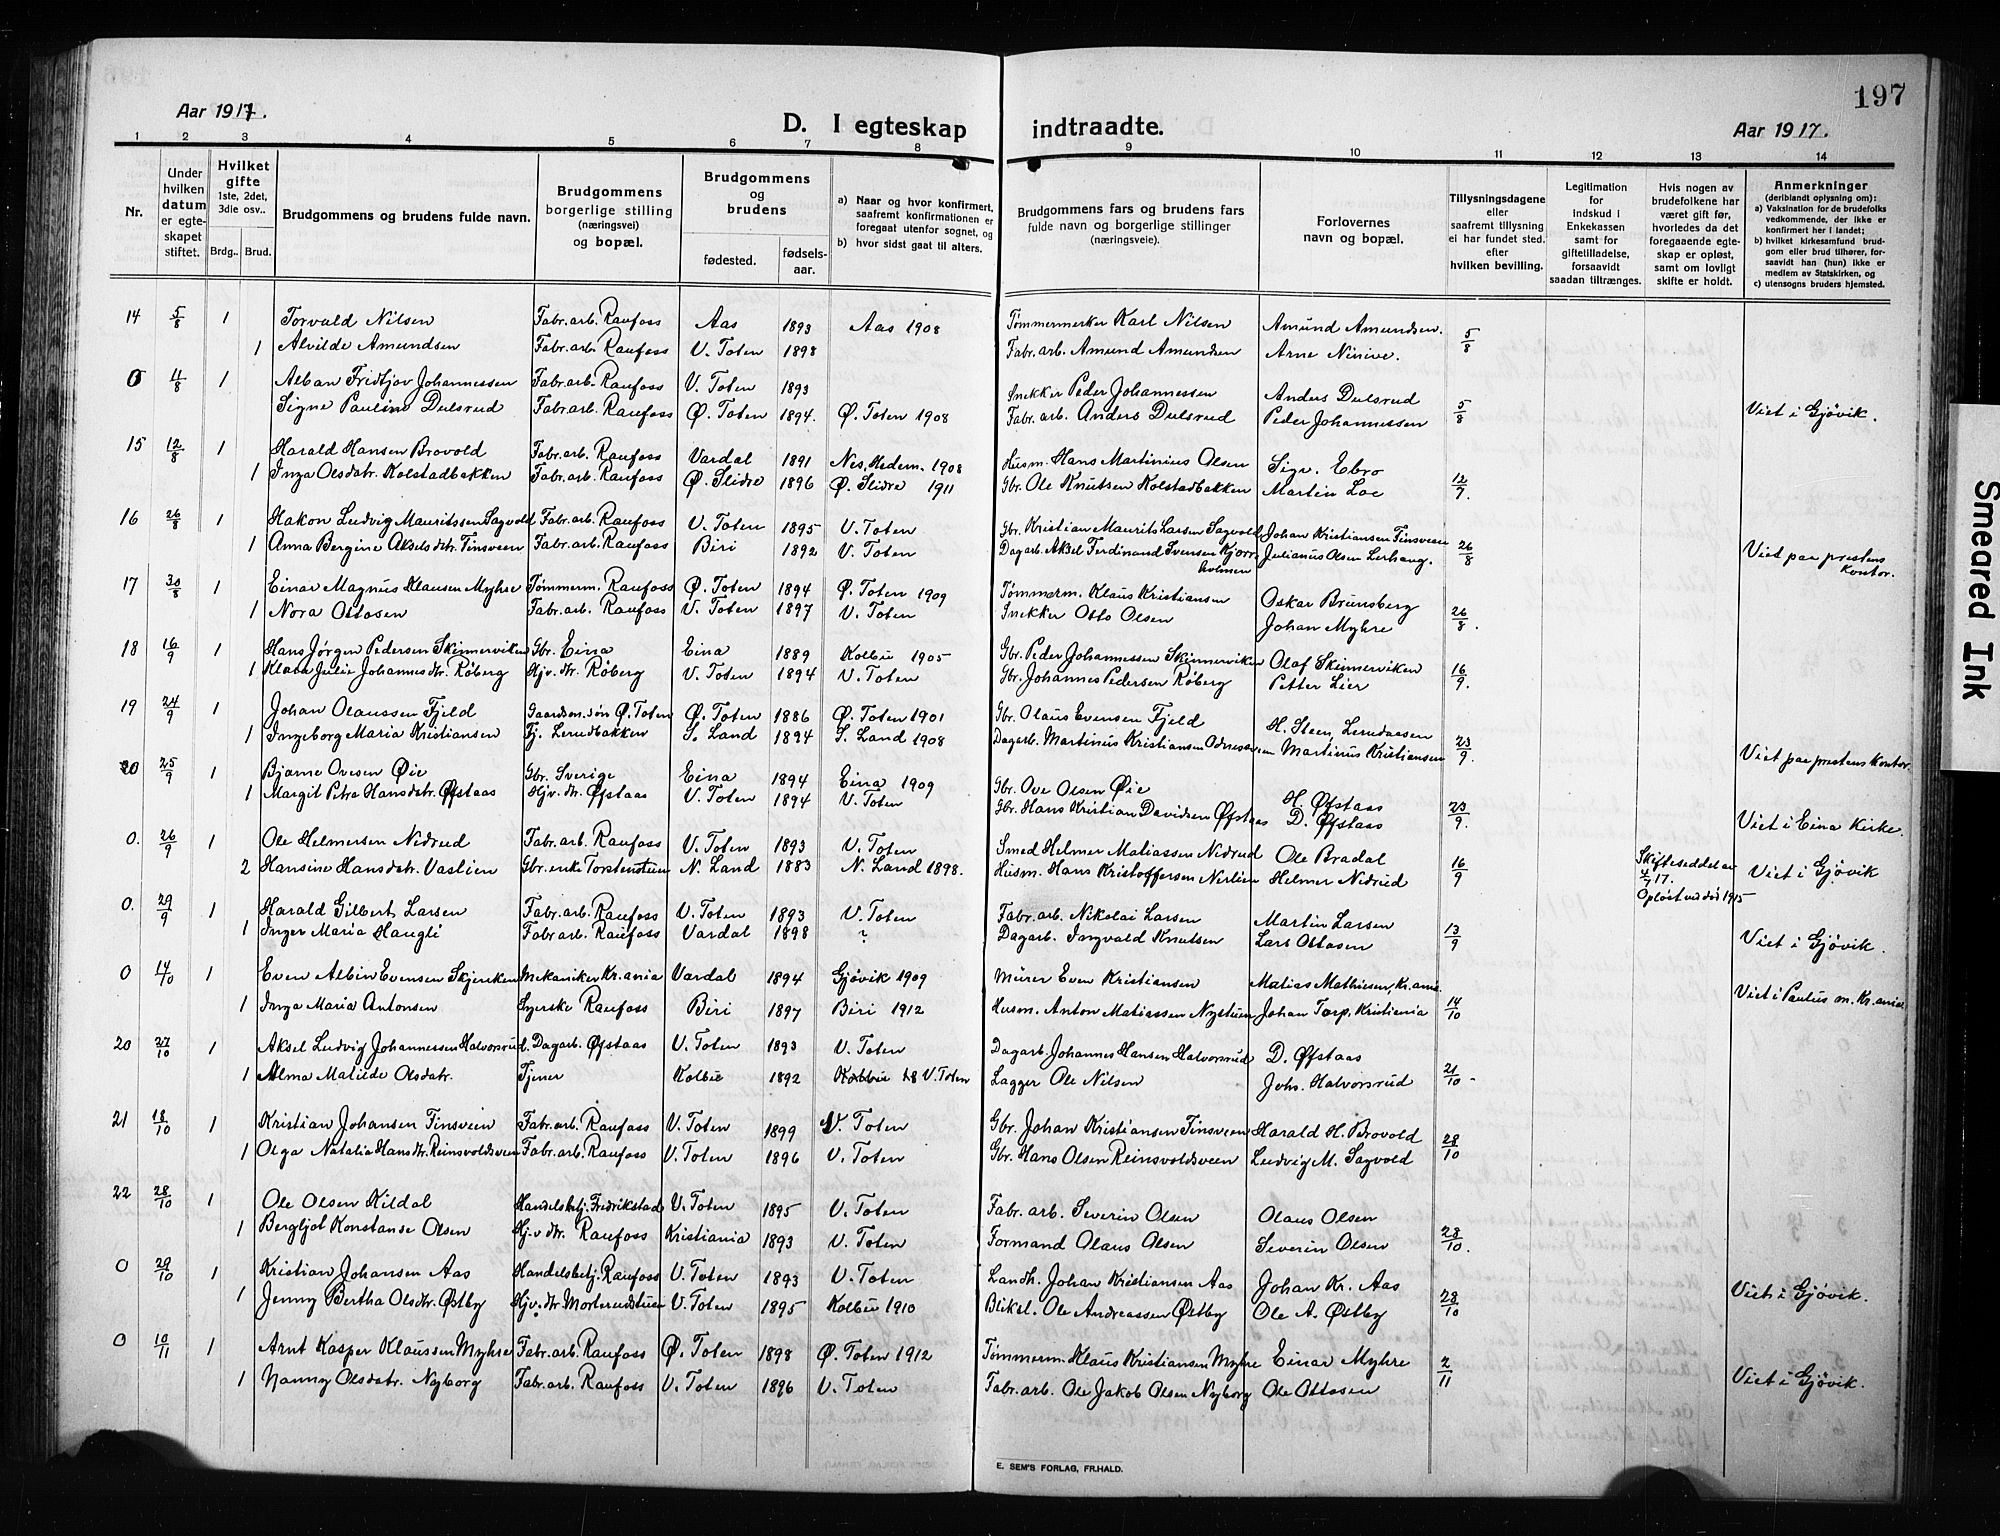 197
Aar 1917.
D. I egteskap indtraadte.
Aar 1917.
1 2 3 4 5 6 7 8 9 10 11 12 13 14
Nr.
Under hvilken datum er egteskapet stiftet.
Hvilket gifte 1ste, 2det, 3die osv..
Brdg.. Brud.
Brudgommens og brudens fulde navn.
Brudgommens borgerlige stilling (næringsvei) og bopæl.
Brudgommens og brudens
fødested. fødselsaar.
a) Naar og hvor konfirmert, saafremt konfirmationen er foregaat utenfor sognet, og
b) hvor sidst gaat til alters.
Brudgommens fars og brudens fars fulde navn og borgerlige stillinger (næringsveie).
Forlovernes navn og bopæl.
Tillysningsdagene eller saafremt tillysning ei har fundet sted, efter hvilken bevilling.
Legitimation for Indskud i Enkekassen samt for giftetilladelse, forsaavidt saadan tiltrænges.
Hvis nogen av brudefolkene har været gift før, hvorledes da det foregaaende egteskap er opløst, samt om lovlig skifte er holdt.
Anmerkninger (deriblandt oplysning om):
a) Vaksination for de brudefolks vedkommende, der ikke er konfirmert her i landet;
b) hvilket kirkesamfund brudgom eller brud tilhører, forsaavidt han (hun) ikke er medlem av Statskirken, og
c) utensogns bruders hjemsted.
14 5/8 1 Torvald Nilsen Fabr.arb. Raufoss Aas 1893 Aas 1908 Tømmermerker Karl Nilsen Amund Amundsen. 5/8
1 Alvilde Amundsen Fabr.arb. Raufoss V. Toten 1898 Fabr.arb. Amund Amundsen Arne Ninive.
0 11/8 1 Alban Fridtjov Johannessen Fabr.arb. Raufoss V. Toten 1893 Snekker Peder Johannessen Anders Dulsrud 5/8 Viet i Gjøvik.
Signe Pauline Dulsrud Fabr.arb. Raufoss Ø. Toten 1894. Ø. Toten 1908 Fabr.arb. Anders Dulsrud Peder Johannessen
15 12/8 1 Harald Hansen Brovold Fabr.arb. Raufoss Vardal 1891 Nes, Hedem. 1908 Husm. Hans Martinius Olsen Sigv. Ebro 12/7.
1 Inga Olsdatr. Kolstadbakken Fabr.arb. Raufoss Ø. Slidre 1896 Ø. Slidre 1911 Gbr. Ole Knutsen Kolstadbakken Martin Loe
16 26/8 1 Hakon Ludvig Mauritssen Sagvold Fabr.arb. Raufoss V. Toten 1895 V. Toten Gbr. Kristian Maurits Larsen Sagvold Johan Kristiansen Finsveen 26/8 Viet paa prestens kontor.
1 Anna Bergine Akselsdtr. Finsveen Fabr.arb. Raufoss Biri 1892 V. Toten Dagarb. Aksel Ferdinand Svensen Julianus Olsen Lerhaug.
17 30/8 1 Einar Magnus Klausen Myhre Tømmerm. Raufoss Ø. Toten 1894 Ø. Toten 1909 Tømmerm. Klaus Kristiansen Oskar Brunsberg 26/8.
1 Nora Ottosen Fabr.arb. Raufoss V. Toten 1897 V. Toten Snekker Otto Olsen Johan Myhre
18 16/9 1 Hans Jørgen Pedersen Skinnerviken Gbr. Eina Eina 1889 Kolbu 1905 Gbr. Peder Johannessen Skinnerviken Olaf Skinnerviken 16/9.
1 Klara Julie Johannesdtr. Røberg Hjv. dtr. Røberg V. Toten 1894 V. Toten Gbr. Johannes Pedersen Røberg Petter Lier
19 24/9 1 Johan Olaussen Fjeld Gaardm.søn Ø. Toten Ø. Toten 1886 Ø. Toten 1901 Gbr. Olaus Evensen Fjeld H. Steen, 23/9. Viet paa prestens kontor.
1 Ingeborg Maria Kristiansen Tj. Lerudbakken S. Land 1894 S. Land 1908 Dagarb. Martinus Kristiansen Martinus Kristiansen
20 25/9 1 Bjarne Ovesen Øie Gbr. Sverige Eina 1894 Eina 1909 Gbr. Ove Olsen Øie H. Øfstaas 23/9. Viet i Eina Kirke.
1 Margit Petra Hansdatr. Øfstaas Hjv. dtr. Øfstaas V. Toten 1894 V. Toten Gbr. Hans Kristian Davidsen Øfstaas D. Øfstaas
0. 26/9 1 Ole Helmersen Nedrud Fabr.arb. Raufoss V. Toten 1893 V. Toten Smed Helmer Matiassen Nedrud Ole Bradal 16/9 Skifteseddel av 4/7 17. Opløst ved død 1915 Viet i Gjøvik
2 Hansine Hansdatr. Vaslien Gbr.enke Torstenstuen N. Land 1883 N. Land 1898. Husm. Hans Kristoffersen Nerlien Helmer Nedrud
0. 29/9 1 Harald Gilbert Larsen Fabr.arb. Raufoss V. Toten 1893 V. Toten Fabr.arb. Nikolai Larsen Martin Larsen 13/9 Viet i Gjøvik.
1 Inger Maria Haugli Fabr.arb. Raufoss Vardal 1898 ? Dagarb. Ingvald Knutsen Lars Ottosen
0 14/10 1 Even Albin Evensen Skjerken Mekaniker Kr.ania Vardal 1894 Gjøvik 1909 Murer Even Kristiansen Matias Mathiesen, Kr.ania 14/10 Viet i Paulus m. Kr.ania
1 Inga Maria Antonsen Syerske Raufoss Biri 1897 Biri 1912 Husm. Anton Matiassen Nystuen Johan Torp, Kristiania
20 27/10 1 Aksel Ludvig Johannessen Halvorsrud. Dagarb. Øfstaas V. Toten 1893 V. Toten Dagarb. Johannes Hansen Halvorsrud D. Øfstaas 21/10
1 Alma Matilde Olsdatr. Tjener Kolbu 1892 Kolbu 08 V. Toten Lagger Ole Nilsen Johs. Halvorsrud
21 18/10 1 Kristian Johansen Finsveen Fabr.arb. Raufoss V. Toten 1899 V. Toten Gbr. Johan Kristiansen Finsveen Harald H. Brovold 28/10
1 Olga Natalia Hansdtr. Reinsvoldsveen Fabr.arb. Raufoss V. Toten 1896 V. Toten Gbr. Hans Olsen Reinsvoldsveen Ludvig M. Sagvold
22 28/10 1 Ole Olsen Kildal Handelsbetj. Fredrikstad V. Toten 1895 V. Toten Fabr.arb. Severin Olsen Olaus Olsen 28/10.
1 Bergljot Konstanse Olsen Hj.v dtr. Raufoss Kristiania 1893 V. Toten Formand Olaus Olsen Severin Olsen
0 29/10 1 Kristian Johansen Aas Handelsbetj. Raufoss V. Toten 1893 V. Toten Landh. Johan Kristiansen Aas Johan Kr. Aas 28/10 Viet i Gjøvik.
1 Jenny Bertha Olsdtr. Østby Hjv. dtr. Morterudstuen V. Toten 1895 Kolbu 1910 Bliksl. Ole Andreassen Østby Ole A. Østby
0 10/11 1 Arnt Kasper Klaussen Myhre Fabr.arb. Raufoss Ø. Toten 1898 Ø. Toten 1912 Tømmerm. Klaus Kristiansen Myhre Einar Myhre 2/11 Viet i Gjøvik.
1 Nanny Olsdatr. Nyborg Fabr.arb. Raufoss V. Toten 1896 V. Toten Fabr.arb. Ole Jakob Olsen Nyborg Ole Ottosen
E. SEM'S FORLAG, FR.HALD.
Smeared Ink